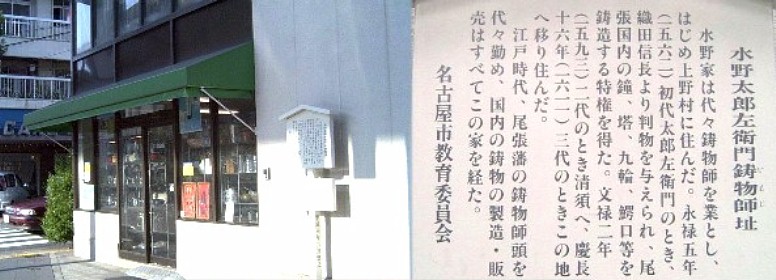 水野太郎左衛門鋳物師址
いもじ
水野家は代々鋳物師を業とし、
はじめ上野村に住んだ。永禄五年
(一五六二)初代太郎左衛門のとき、
織田信長より判物を与えられ、尾
張国内の鐘、塔、九輪、鰐口等を
鋳造する特権を得た。文禄二年
(一五九三)二代のとき清須へ、慶長
十六年(一六一一)三代のときこの地
へ移り住んだ。
江戸時代、尾張藩の鋳物師頭を
代々勤め、国内の鋳物の製造・販
売はすべてこの家を経た。
名古屋市教育委員会